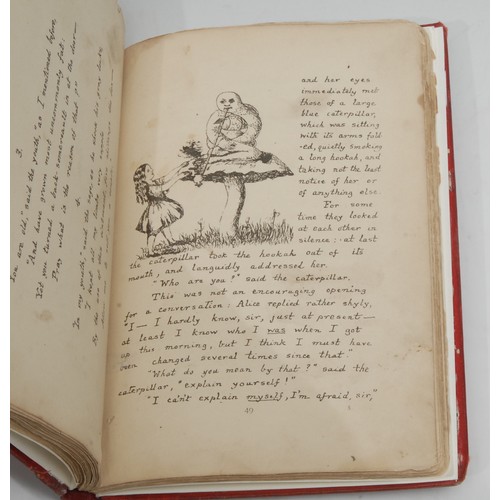 3.
"You are old," said the youth, "as I mentioned before,
And have grown most uncommonly fat:
Yet you turned a back-somersault in at the door—
Pray what is the reason of that?"
4.
"In my youth,"
and her eyes
immediately met
those of a large
blue caterpillar,
which was sitting
with its arms fold
-ed, quietly smoking
a long hookah, and
taking not the least
notice of her or
of anything else.
For some
time they looked
at each other in
silence: at last
the caterpillar took the hookah out of its
mouth, and languidly addressed her.
"Who are you?" said the caterpillar.
This was not an encouraging opening
for a conversation: Alice replied rather shyly,
"I— I hardly know, sir, just at present—
at least I know who I was when I got
up this morning, but I think I must have
been changed several times since that"
"What do you mean by that?" said the
caterpillar, "explain yourself!"
"I can't explain myself, I'm afraid, sir,"
49